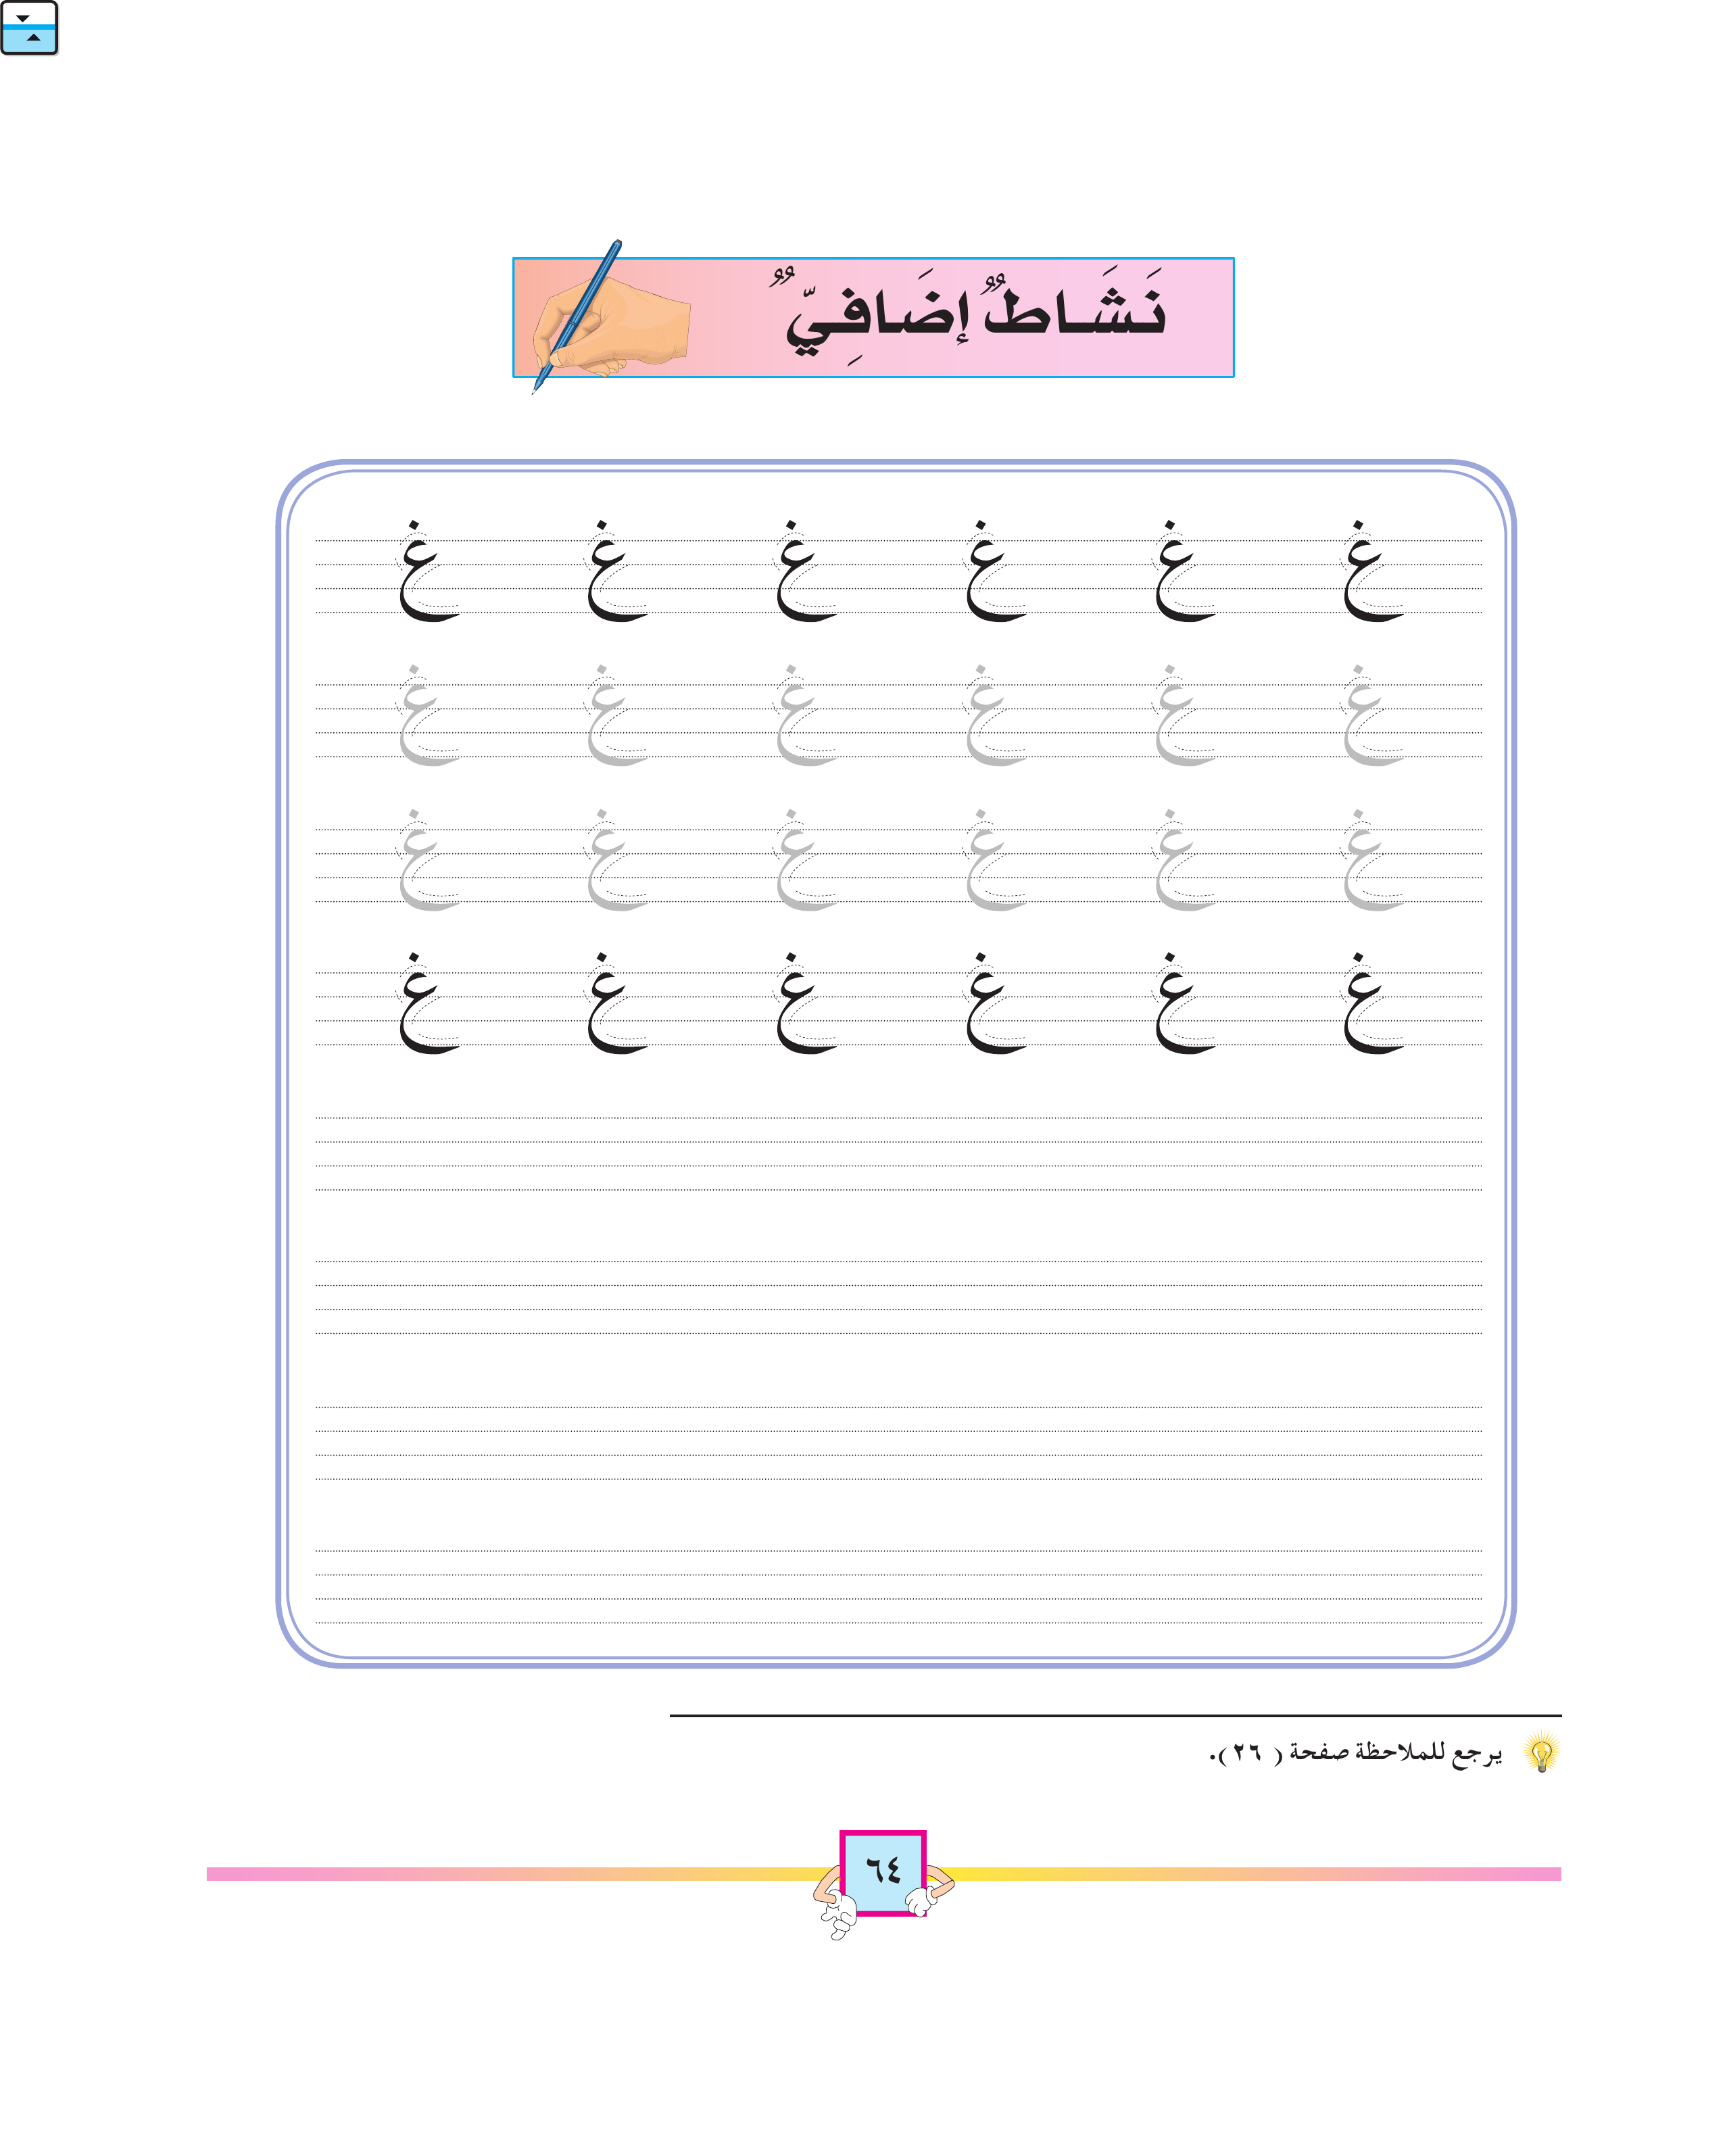 نَشَاطٌ إِضَافِيٌّ
غ غ غ غ غ غ
غ غ غ غ غ غ
غ غ غ غ غ غ
غ غ غ غ غ غ
يرجع للملاحظة صفحة ( ٢٦ ).
٦٤